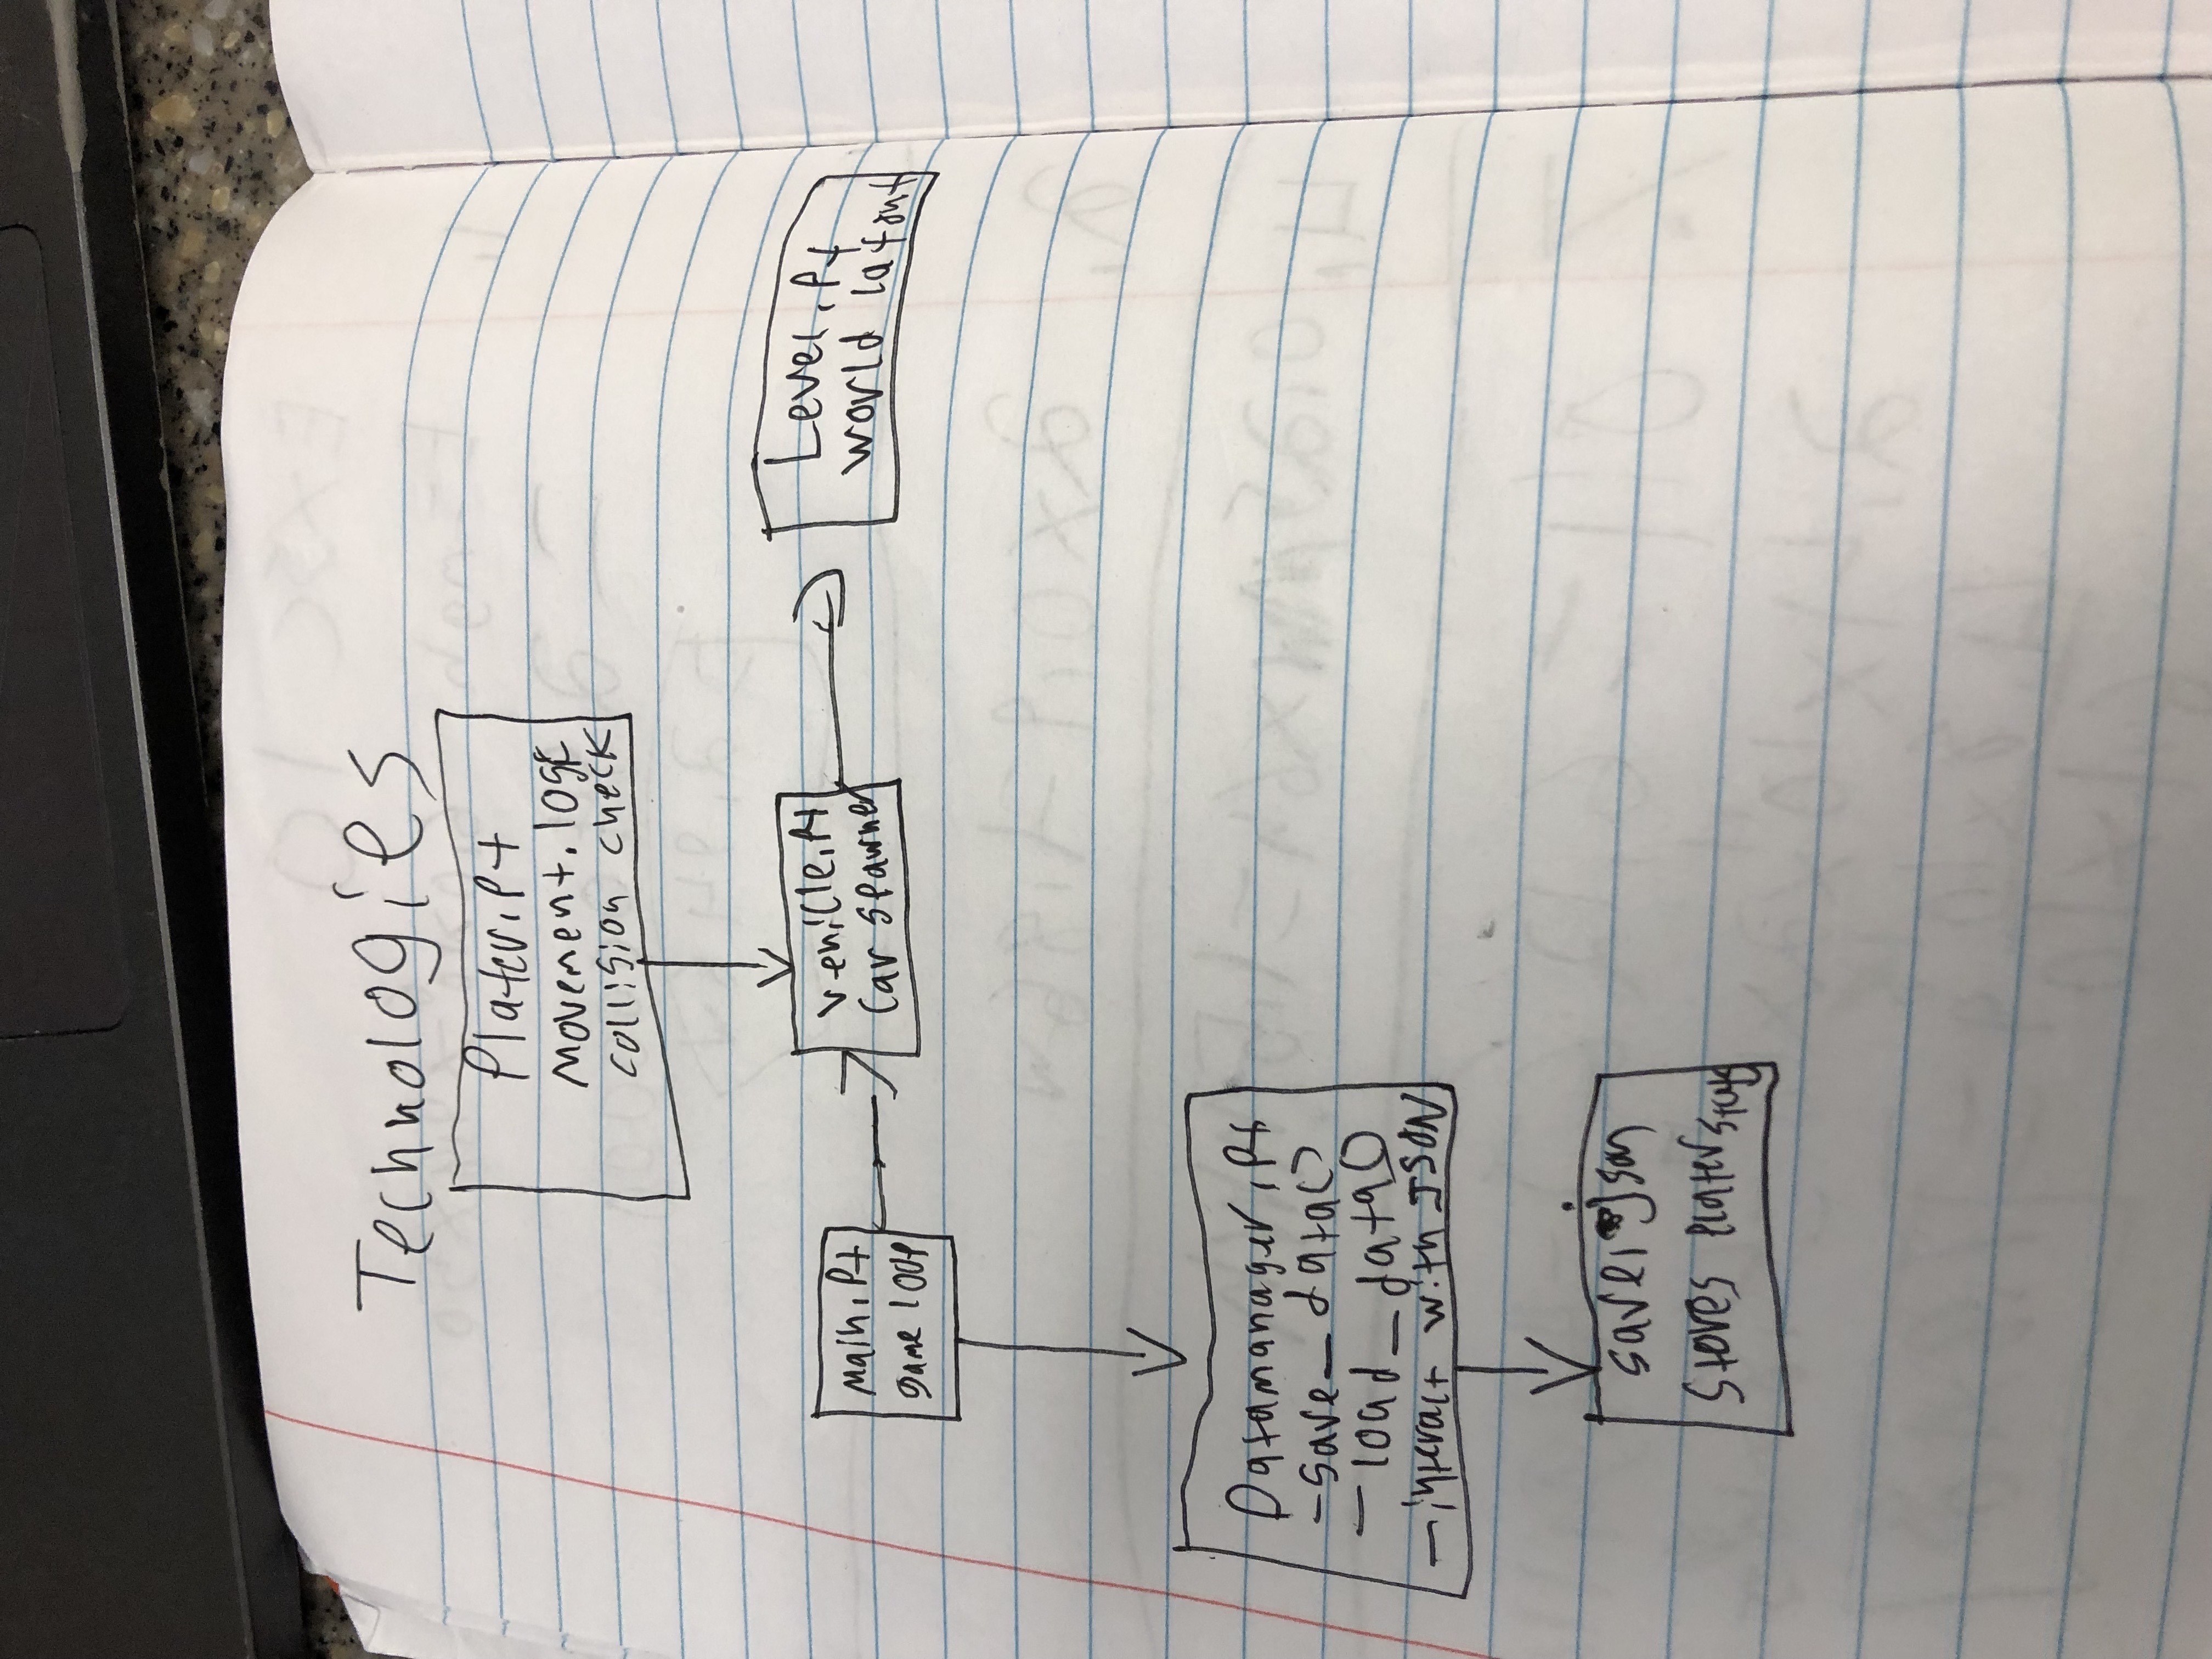 Technologies
Player.py
movement. logic
collision check
main.py
game loop
vehicle.py
car spawner
Level.py
world layout
Datamanager.py
- save_data()
- load_data()
- interact with JSON
save.json
stores player stats